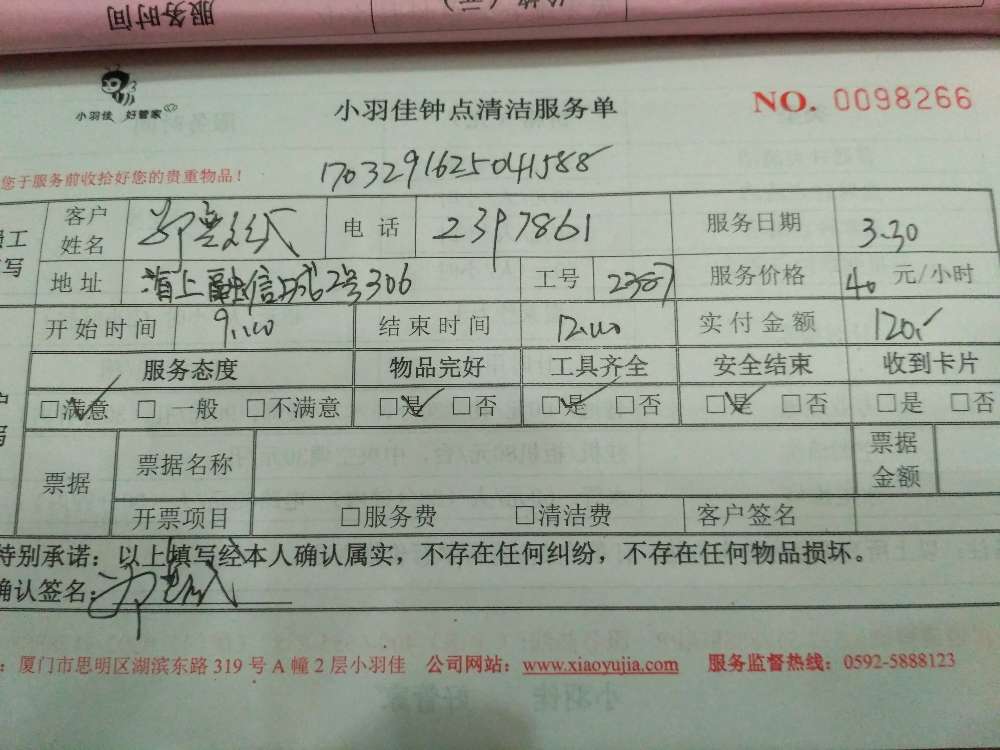 服务时间
小羽佳 好管家
小羽佳钟点清洁服务单
NO. 0098266
您于服务前收拾好您的贵重物品！
1703291625041588
客户姓名 电话 2397861 服务日期 3.30
地址 海上融信城2号306 工号 2387 服务价格 40 元/小时
开始时间 9:00 结束时间 12:00 实付金额 120.-
服务态度 物品完好 工具齐全 安全结束 收到卡片
□满意 □一般 □不满意 □是 □否 □是 □否 □是 □否 □是 □否
票据 票据名称 票据金额
开票项目 □服务费 □清洁费 客户签名
特别承诺：以上填写经本人确认属实，不存在任何纠纷，不存在任何物品损坏。
确认签名：
：厦门市思明区湖滨东路 319 号 A 幢 2 层小羽佳 公司网站：www.xiaoyujia.com 服务监督热线：0592-5888123